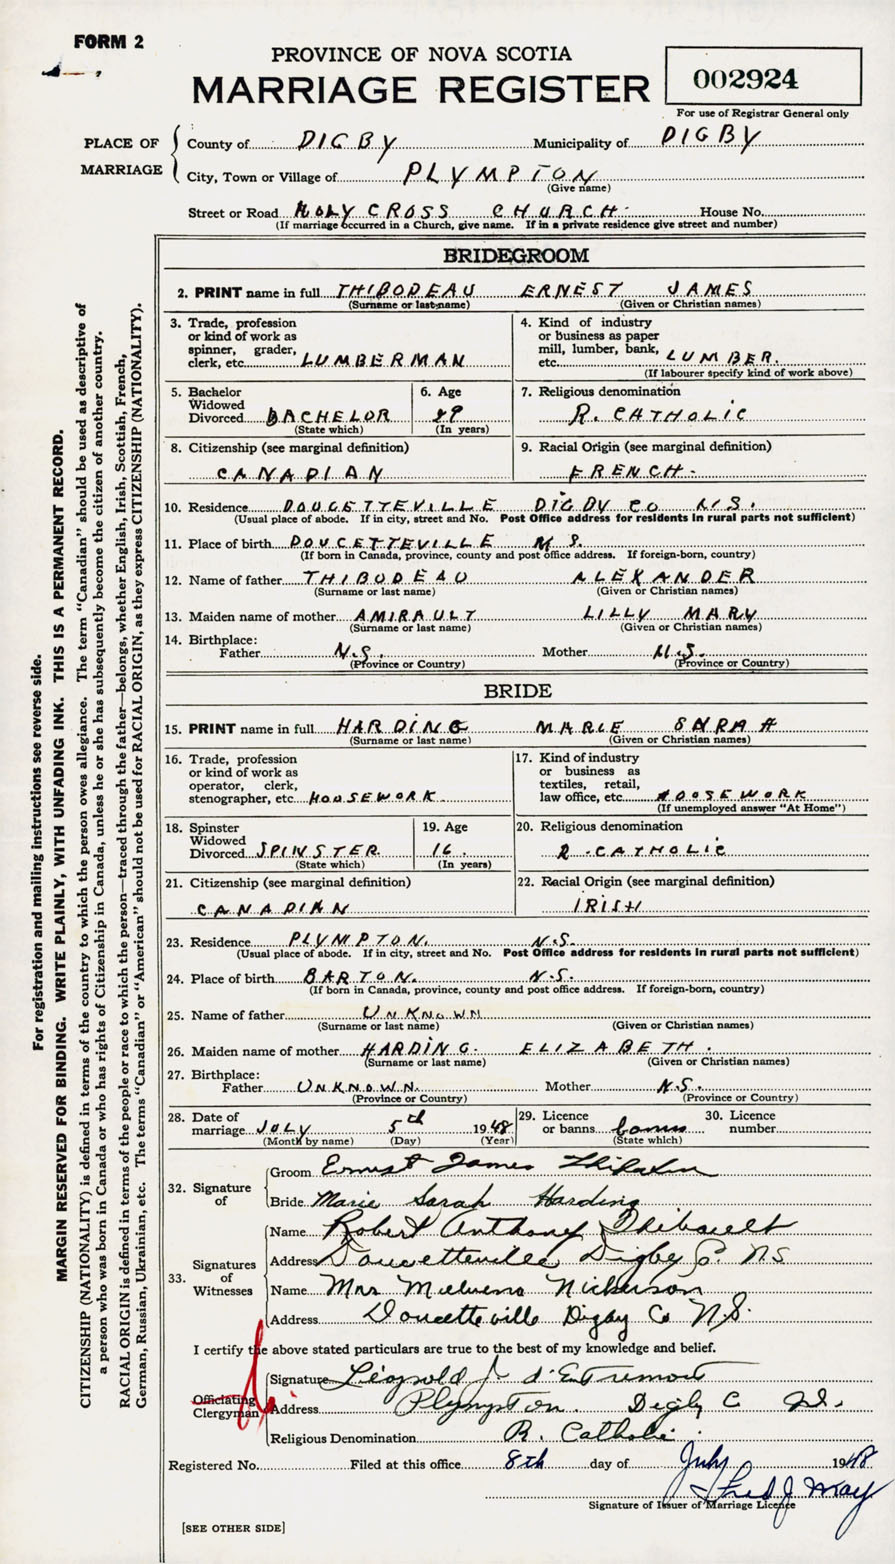 FORM 2
PROVINCE OF NOVA SCOTIA
MARRIAGE REGISTER
002924
For use of Registrar General only
PLACE OF MARRIAGE
County of DIGBY Municipality of DIGBY
City, Town or Village of PLYMPTON
(Give name)
Street or Road HOLY CROSS CHURCH House No.
(If marriage occurred in a Church, give name. If in a private residence give street and number)
BRIDEGROOM
2. PRINT name in full THIBODEAU ERNEST JAMES
(Surname or last name) (Given or Christian names)
3. Trade, profession or kind of work as spinner, grader, clerk, etc. LUMBERMAN
4. Kind of industry or business as paper mill, lumber, bank, etc. LUMBER.
(If labourer specify kind of work above)
5. Bachelor Widowed Divorced BACHELOR
(State which)
6. Age 29
(In years)
7. Religious denomination
R. CATHOLIC
8. Citizenship (see marginal definition)
CANADIAN
9. Racial Origin (see marginal definition)
FRENCH.
10. Residence DOUCETTEVILLE DIGBY CO N.S.
(Usual place of abode. If in city, street and No. Post Office address for residents in rural parts not sufficient)
11. Place of birth DOUCETTEVILLE N.S.
(If born in Canada, province, county and post office address. If foreign-born, country)
12. Name of father THIBODEAU ALEXANDER
(Surname or last name) (Given or Christian names)
13. Maiden name of mother AMIRAULT LILLY MARY
(Surname or last name) (Given or Christian names)
14. Birthplace:
Father N.S. Mother N.S.
(Province or Country) (Province or Country)
BRIDE
15. PRINT name in full HARDING MARIE SARAH
(Surname or last name) (Given or Christian names)
16. Trade, profession or kind of work as operator, clerk, stenographer, etc. HOUSEWORK.
17. Kind of industry or business as textiles, retail, law office, etc. HOUSEWORK
(If unemployed answer "At Home")
18. Spinster Widowed Divorced SPINSTER
(State which)
19. Age 16.
(In years)
20. Religious denomination
R. CATHOLIC
21. Citizenship (see marginal definition)
CANADIAN
22. Racial Origin (see marginal definition)
IRISH
23. Residence PLYMPTON. N.S.
(Usual place of abode. If in city, street and No. Post Office address for residents in rural parts not sufficient)
24. Place of birth BARTON. N.S.
(If born in Canada, province, county and post office address. If foreign-born, country)
25. Name of father UNKNOWN
(Surname or last name) (Given or Christian names)
26. Maiden name of mother HARDING. ELIZABETH.
(Surname or last name) (Given or Christian names)
27. Birthplace:
Father UNKNOWN. Mother N.S.
(Province or Country) (Province or Country)
28. Date of marriage JULY 5th 1948
(Month by name) (Day) (Year)
29. Licence or banns banns
(State which)
30. Licence number
32. Signature of
Groom Ernest James
Bride Marie Sarah Harding
33. Signatures of Witnesses
Name Robert Anthony Thibault
Address Doucetteville Digby Co. N.S
Name Mrs Nickerson
Address Doucetteville Digby Co N.S.
I certify the above stated particulars are true to the best of my knowledge and belief.
Officiating Clergyman
Signature Léopold J. d'Entremont
Address Plympton. Digby C N.S.
Religious Denomination R. Catholic
Registered No. Filed at this office 8th day of July 1948
Fred J May
Signature of Issuer of Marriage Licence
[SEE OTHER SIDE]
For registration and mailing instructions see reverse side.
MARGIN RESERVED FOR BINDING. WRITE PLAINLY, WITH UNFADING INK. THIS IS A PERMANENT RECORD.
CITIZENSHIP (NATIONALITY) is defined in terms of the country to which the person owes allegiance. The term "Canadian" should be used as descriptive of
a person who was born in Canada or who has rights of Citizenship in Canada, unless he or she has subsequently become the citizen of another country.
RACIAL ORIGIN is defined in terms of the people or race to which the person—traced through the father—belongs, whether English, Irish, Scottish, French,
German, Russian, Ukrainian, etc. The terms "Canadian" or "American" should not be used for RACIAL ORIGIN, as they express CITIZENSHIP (NATIONALITY).